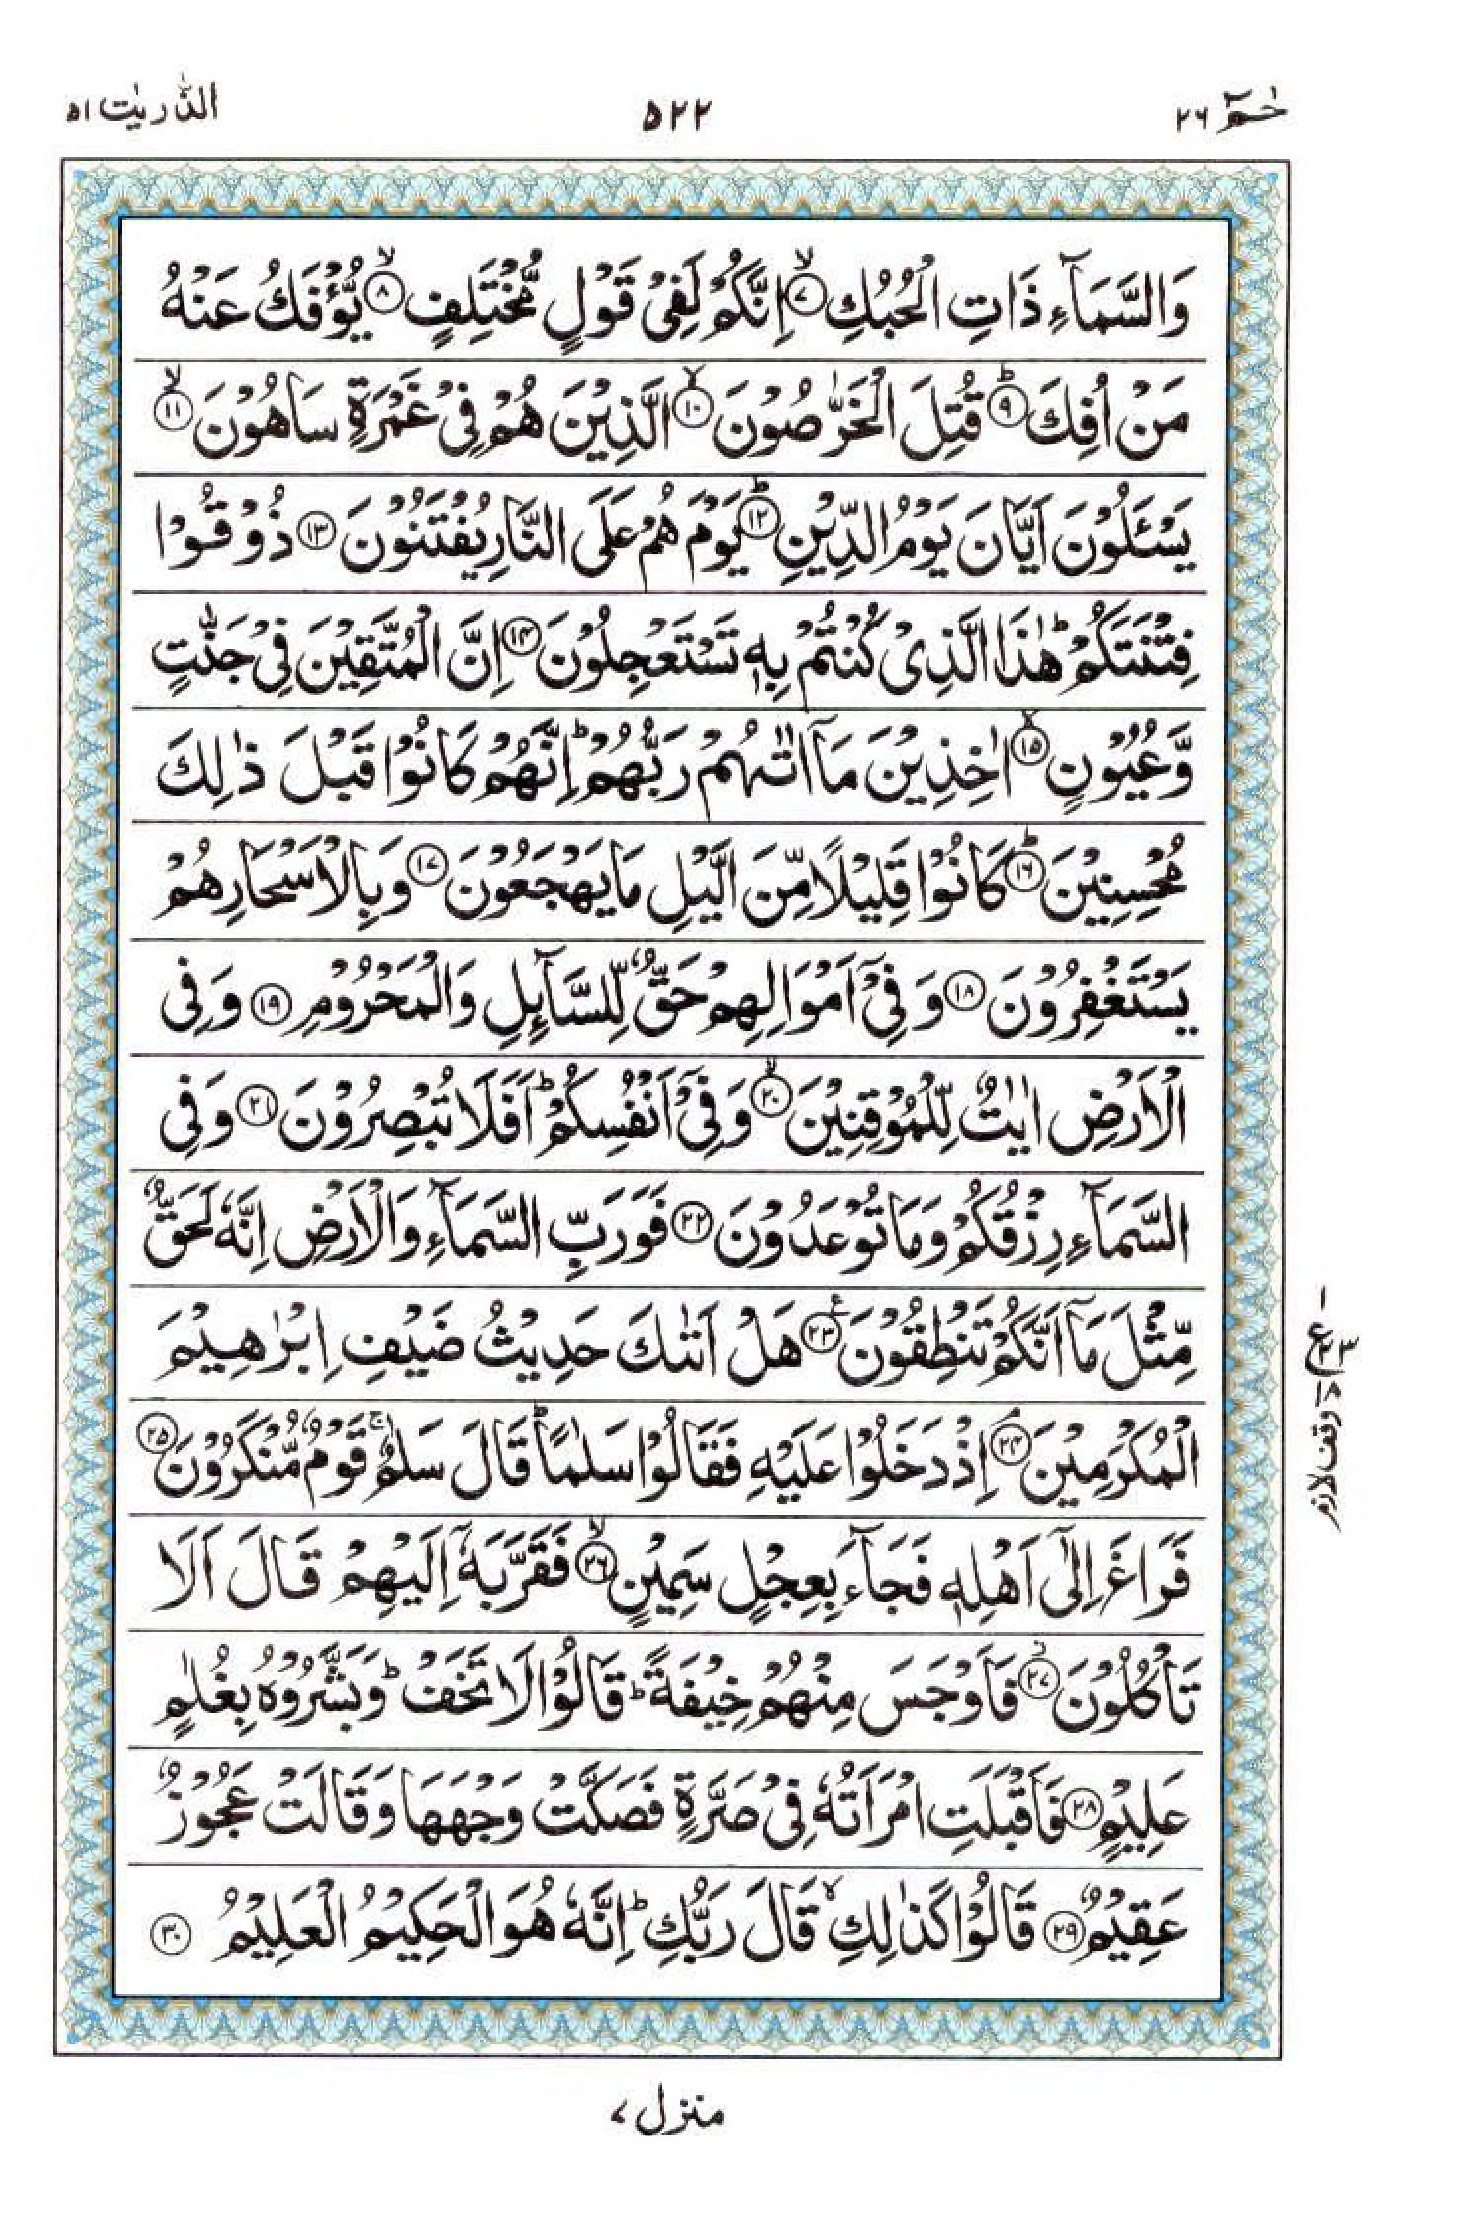 حٰمٓ ٢٦
٥٢٢
الذّٰريٰت ٥١
وَالسَّمَآءِ ذَاتِ الْحُبُكِ ۙ‏﴿٧﴾ اِنَّكُمْ لَفِىْ قَوْلٍ مُّخْتَلِفٍ ۙ‏﴿٨﴾ يُّؤْفَكُ عَنْهُ
مَنْ اُفِكَ ؕ‏﴿٩﴾ قُتِلَ الْخَرّٰصُوْنَ ۙ‏﴿١٠﴾ الَّذِيْنَ هُمْ فِىْ غَمْرَةٍ سَاهُوْنَ ۙ‏﴿١١﴾
يَسْئَلُوْنَ اَيَّانَ يَوْمُ الدِّيْنِ ؕ‏﴿١٢﴾ يَوْمَ هُمْ عَلَى النَّارِ يُفْتَنُوْنَ ﴿١٣﴾ ذُوْقُوْا
فِتْنَتَكُمْ ؕ هٰذَا الَّذِىْ كُنْتُمْ بِهٖ تَسْتَعْجِلُوْنَ ﴿١٤﴾ اِنَّ الْمُتَّقِيْنَ فِىْ جَنّٰتٍ
وَّعُيُوْنٍ ۙ‏﴿١٥﴾ اٰخِذِيْنَ مَاۤ اٰتٰىهُمْ رَبُّهُمْ ؕ اِنَّهُمْ كَانُوْا قَبْلَ ذٰلِكَ
مُحْسِنِيْنَ ؕ‏﴿١٦﴾ كَانُوْا قَلِيْلًا مِّنَ الَّيْلِ مَا يَهْجَعُوْنَ ﴿١٧﴾ وَبِالْاَسْحَارِ هُمْ
يَسْتَغْفِرُوْنَ ﴿١٨﴾ وَفِىْۤ اَمْوَالِهِمْ حَقٌّ لِّلسَّآئِلِ وَالْمَحْرُوْمِ ﴿١٩﴾ وَفِى
الْاَرْضِ اٰيٰتٌ لِّلْمُوْقِنِيْنَ ۙ‏﴿٢٠﴾ وَفِىْۤ اَنْفُسِكُمْ ؕ اَفَلَا تُبْصِرُوْنَ ﴿٢١﴾ وَفِى
السَّمَآءِ رِزْقُكُمْ وَمَا تُوْعَدُوْنَ ﴿٢٢﴾ فَوَرَبِّ السَّمَآءِ وَالْاَرْضِ اِنَّهٗ لَحَقٌّ
مِّثْلَ مَاۤ اَنَّكُمْ تَنْطِقُوْنَ ۧ‏﴿٢٣﴾ هَلْ اَتٰىكَ حَدِيْثُ ضَيْفِ اِبْرٰهِيْمَ
الْمُكْرَمِيْنَ ۘ‏﴿٢٤﴾ اِذْ دَخَلُوْا عَلَيْهِ فَقَالُوْا سَلٰمًا ؕ قَالَ سَلٰمٌ ۚ قَوْمٌ مُّنْكَرُوْنَ ﴿٢٥﴾
فَرَاغَ اِلٰٓى اَهْلِهٖ فَجَآءَ بِعِجْلٍ سَمِيْنٍ ۙ‏﴿٢٦﴾ فَقَرَّبَهٗۤ اِلَيْهِمْ قَالَ اَلَا
تَاْكُلُوْنَ ؗ‏﴿٢٧﴾ فَاَوْجَسَ مِنْهُمْ خِيْفَةً ؕ قَالُوْا لَا تَخَفْ ؕ وَبَشَّرُوْهُ بِغُلٰمٍ
عَلِيْمٍ ﴿٢٨﴾ فَاَقْبَلَتِ امْرَاَتُهٗ فِىْ صَرَّةٍ فَصَكَّتْ وَجْهَهَا وَقَالَتْ عَجُوْزٌ
عَقِيْمٌ ﴿٢٩﴾ قَالُوْا كَذٰلِكِ ۙ قَالَ رَبُّكِ ؕ اِنَّهٗ هُوَ الْحَكِيْمُ الْعَلِيْمُ ﴿٣٠﴾
وقف لازم
منزل ٧